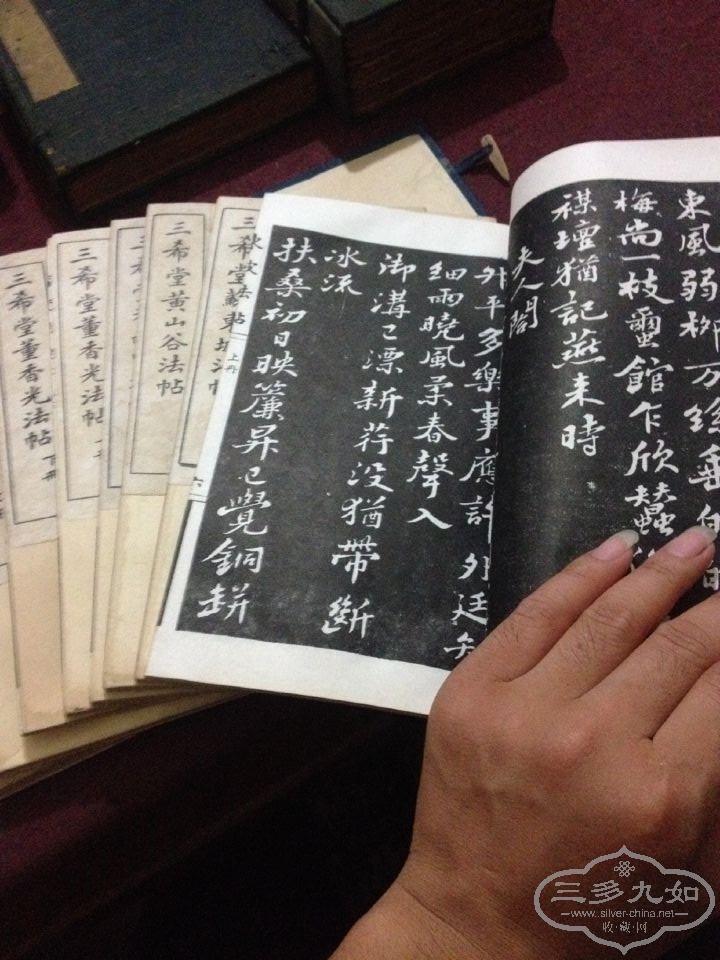 東風弱柳万丝垂的
梅尚一枝蠶館乍欣蠶
禖壇猶記燕来時
夫人閤
升平多樂事應許外廷知
細雨曉風柔春聲入
御溝已漂新荇没猶帶斷
冰流
扶桑初日映簾昇已覺銅缾
上冊
三希堂
三希堂黄山谷法帖
三希堂董香光法帖
三希堂董香光法帖 下冊
三多九如
www.silver-china.net
收·藏·网